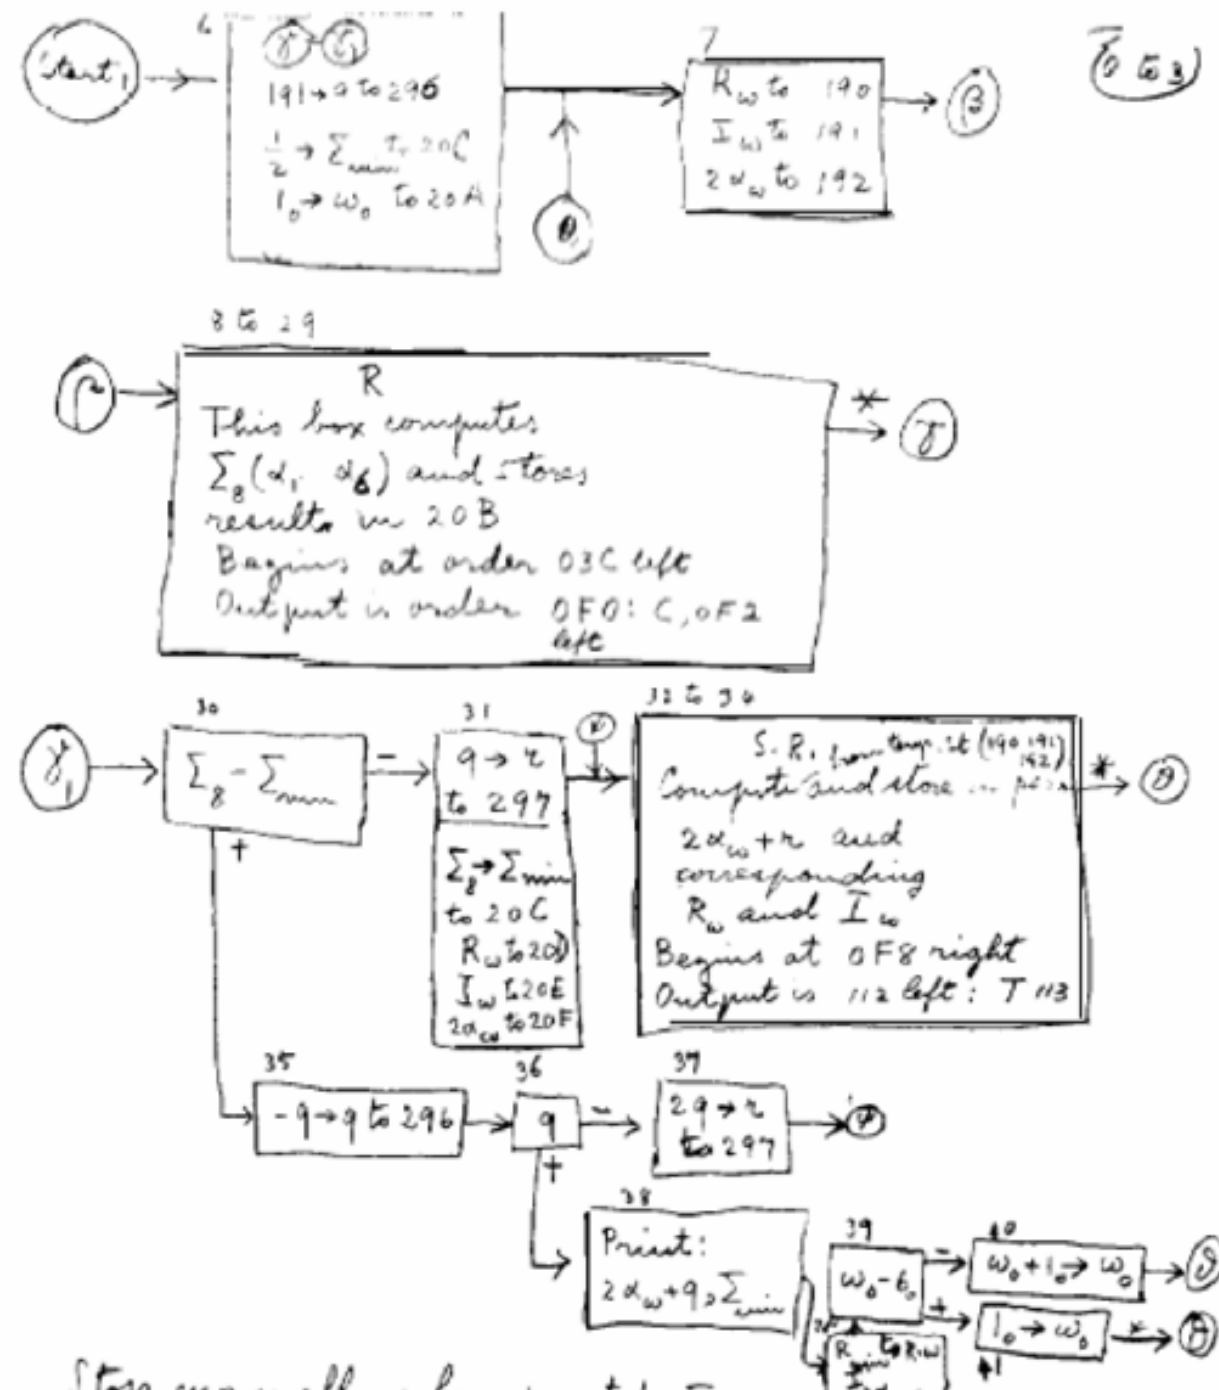 6
Start₁
191→q to 296
½ → Σmin to 20C
1₀→ω₀ to 20A
θ
7
Rω to 190
Iω to 191
2αω to 192
β
8 to 29
R
This box computes
Σ₈(α₁ α6) and stores
results in 20B
Begins at order 03C left
Output is order 0F0: C, 0F2
left
γ
γ₁
30
Σ₈ - Σmin
-
+
31
q → r
to 297
Σ₈→Σmin
to 20C
Rω to 20D
Iω to 20E
2αω to 20F
S.R. from temp. st (190 191
192)
Compute and store
2αω+r and
corresponding
Rω and Iω
Begins at 0F8 right
Output is 112 left: T 113
*
35
-q→q to 296
36
q
-
+
37
2q→r
to 297
38
Print:
2αω+q, Σmin
39
ω₀-6₀
-
+
40
ω₀+1₀→ω₀
1₀→ω₀
*
41
Store